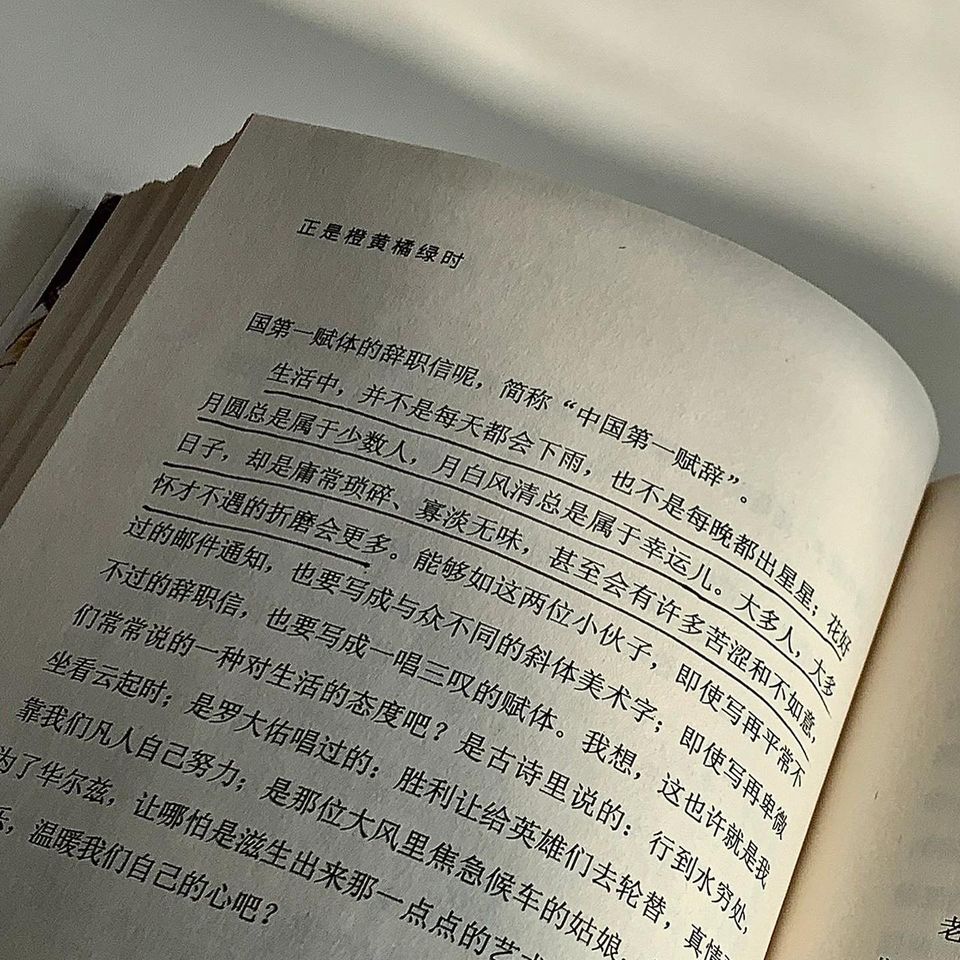 正是橙黄橘绿时
国第一赋体的辞职信呢，简称“中国第一赋辞”。
生活中，并不是每天都会下雨，也不是每晚都出星星；花好
月圆总是属于少数人，月白风清总是属于幸运儿。大多人，大多
日子，却是庸常琐碎、寡淡无味，甚至会有许多苦涩和不如意，
怀才不遇的折磨会更多。能够如这两位小伙子，即使写再平常不
过的邮件通知，也要写成与众不同的斜体美术字；即使写再卑微
不过的辞职信，也要写成一唱三叹的赋体。我想，这也许就是我
们常常说的一种对生活的态度吧？是古诗里说的：行到水穷处，
坐看云起时；是罗大佑唱过的：胜利让给英雄们去轮替，真情
靠我们凡人自己努力；是那位大风里焦急候车的姑娘，
为了华尔兹，让哪怕是滋生出来那一点点的艺
，温暖我们自己的心吧？
老